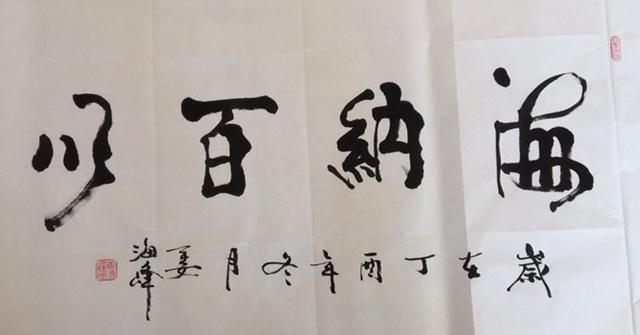 海納百川
歲在丁酉年冬月姜海峰